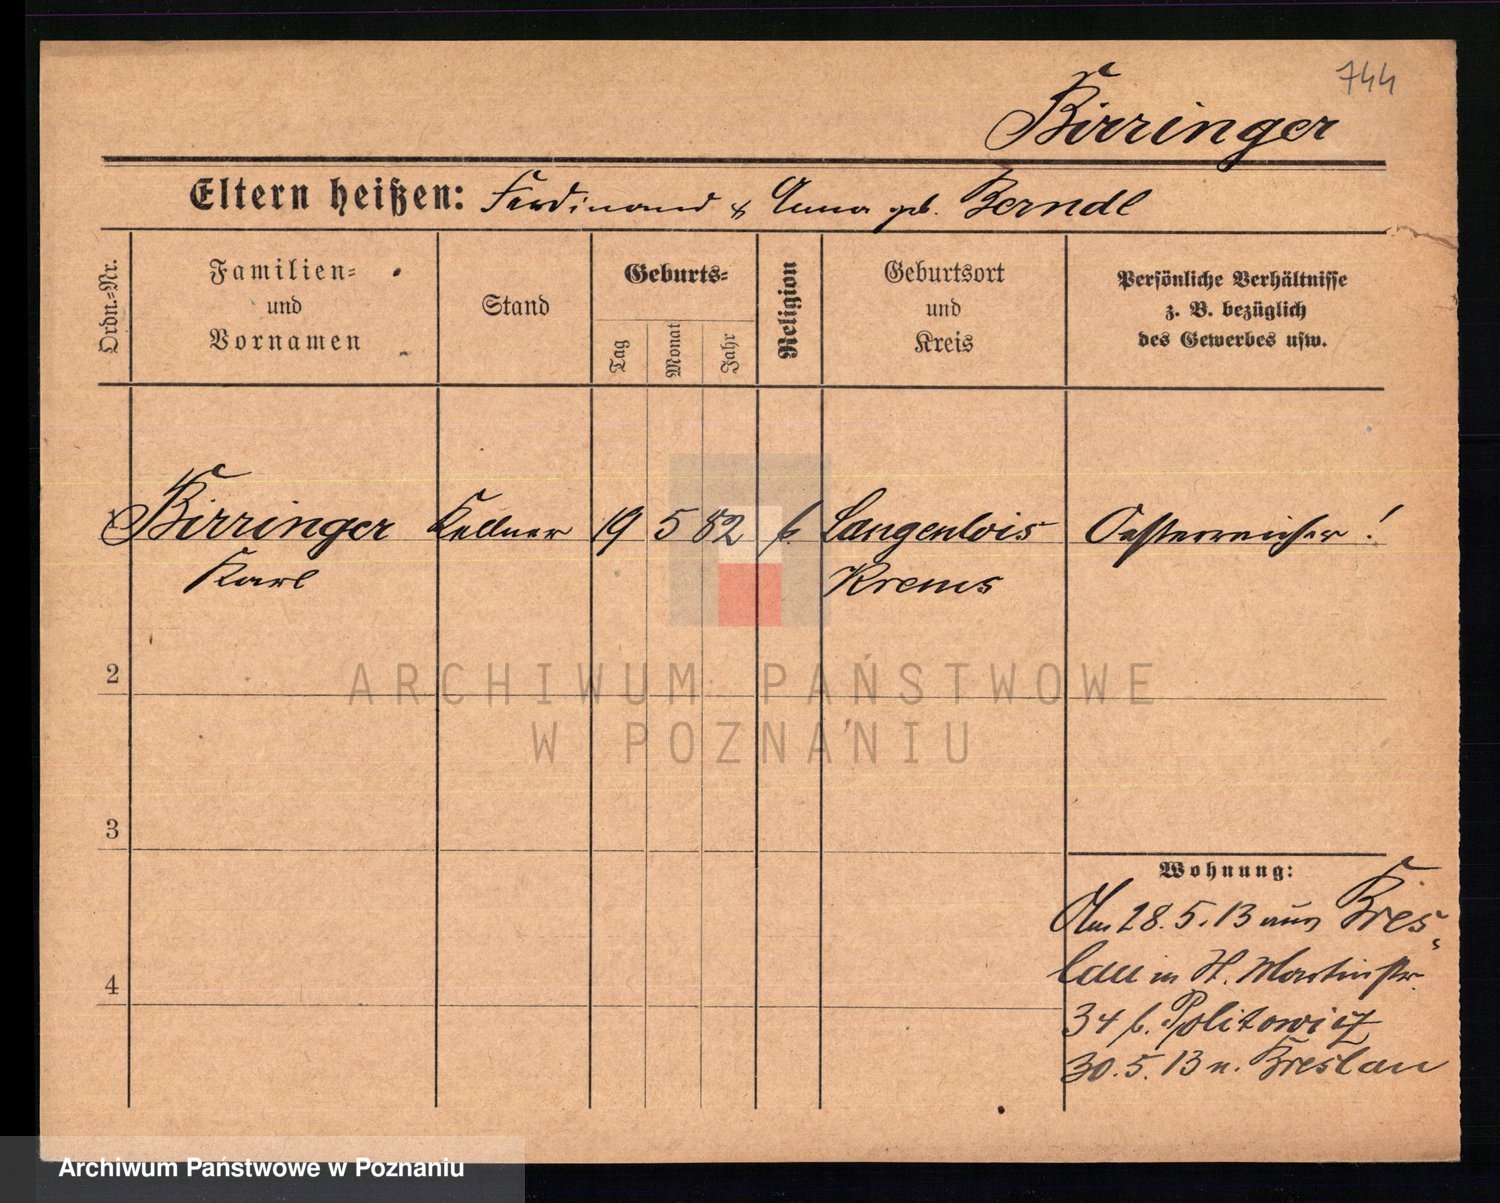 744
Birringer
Eltern heißen: Ferdinand & Anna geb. Berndl
Ordn.-Nr.
Familien-
und
Vornamen
Stand
Geburts-
Tag
Monat
Jahr
Religion
Geburtsort
und
Kreis
Persönliche Verhältnisse
z. B. bezüglich
des Gewerbes usw.
Birringer Kellner 19 5 82 k. Langenlois Oesterreicher!
Karl Krems
2
3
4
Wohnung:
Am 28.5.13 aus Bres-
lau in St. Martinstr.
34 b. Politowicz
30.5.13 n. Breslau
ARCHIWUM PAŃSTWOWE
W POZNANIU
Archiwum Państwowe w Poznaniu